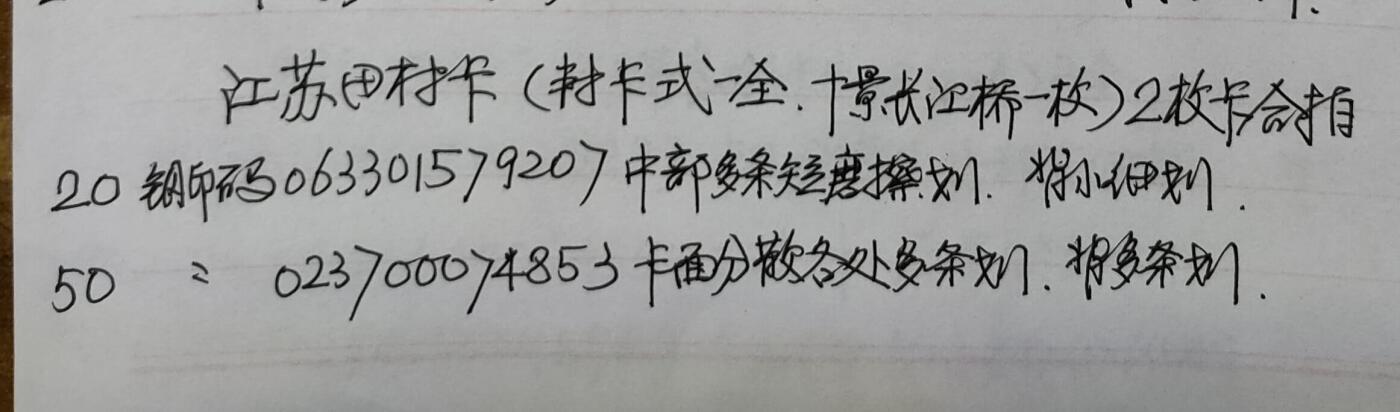 江苏田村卡（封卡式一全.十景长江桥一枚）2枚卡合拍
20 钢印码063301579207中部多条短磨擦划.背小细划.
50 〃 023700074853卡面分散各处多条划.背多条划.